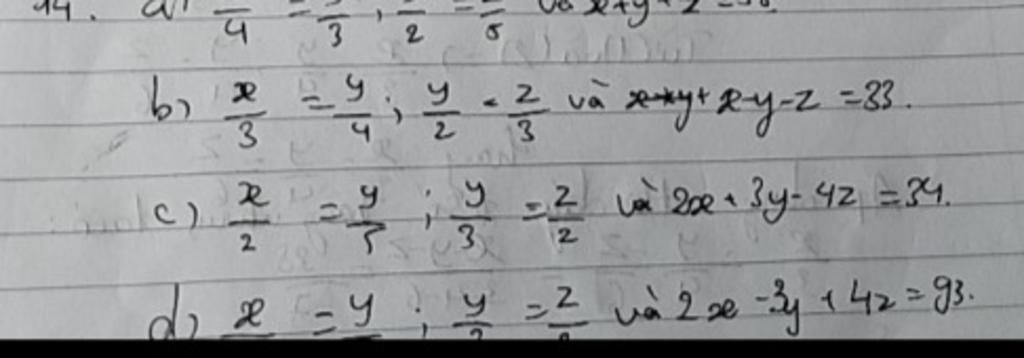 14. a) /4 = /3 , /2 = /5 và x+y+z
b) x/3 = y/4 ; y/2 = z/3 và x-y-z = 33.
c) x/2 = y/5 ; y/3 = z/2 và 2x + 3y - 4z = 34.
d) x = y ; y = z và 2x - 3y + 4z = 93.